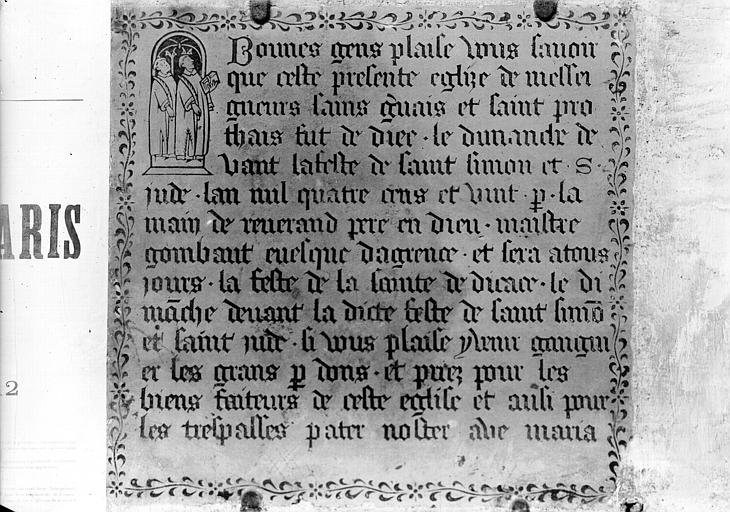 Bonnes gens plaise vous sauoir
que ceste presente eglize de messei
gneurs sains gvais et saint pro
thais fut de diee · le dimanche de
vant lafeste de saint simon et · s
jude · lan mil quatre cens et vint · p · la
main de reuerand pere en dieu · maistre
gombaut euesque dagrence · et sera atous
jours · la feste de la sainte de dicace · le di
māche deuant la dicte feste de saint simō
et saint jude · si vous plaise y venir gaingni
er les grans p dons · et priez pour les
biens faiteurs de ceste eglise et ausi pour
les trespasses pater noster ave maria
ARIS
2